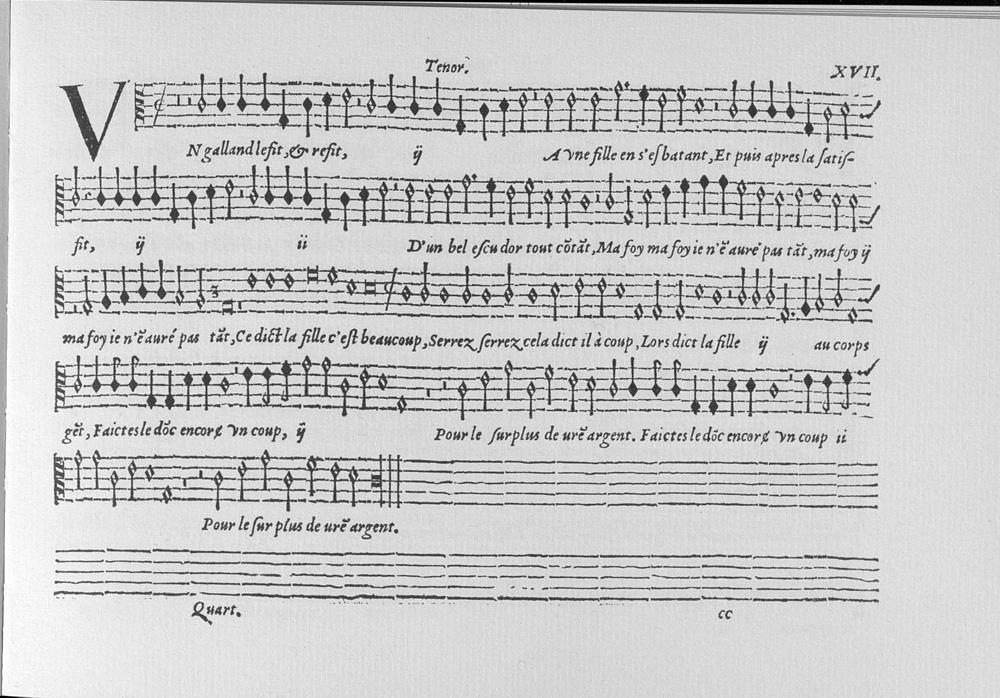 Tenor.
XVII.
VN galland le fit, & refit, ij A vne fille en s'esbatant, Et puis apres la satif-
fit, ij ii D'un bel escu dor tout cõtãt, Ma foy ma foy ie n'ẽ auré pas tãt, ma foy ij
ma foy ie n'ẽ auré pas tãt, Ce dict la fille c'est beaucoup, Serrez serrez cela dict il à coup, Lors dict la fille ij au corps
gẽt, Faictes le dõc encore vn coup, ij Pour le surplus de urẽ argent. Faictes le dõc encore vn coup ii
Pour le sur plus de urẽ argent.
Quart.
cc